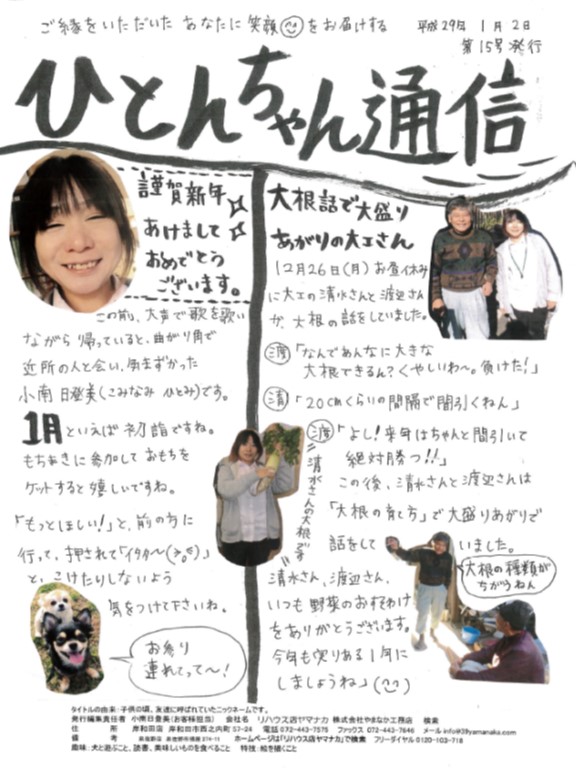 ご縁をいただいた あなたに 笑顔をお届けする
平成29年 1月2日
第15号発行
ひとんちゃん通信
謹賀新年
あけまして
おめでとう
ございます。
この前、大声で歌を歌い
ながら帰っていると、曲がり角で
近所の人と会い、気まずかった
小南 日登美(こみなみ ひとみ)です。
1月といえば初詣ですね。
もちまきに参加しておもちを
ゲットすると嬉しいですね。
「もっとほしい!」と、前の方に
行って、押されて「イタタ〜」
と、こけたりしないよう
気をつけて下さいね。
お参り
連れてって〜!
大根話で大盛り
あがりの大工さん
12月26日(月)お昼休み
に大工の清水さんと渡辺さん
が、大根の話をしていました。
渡「なんであんなに大きな
大根できるん?くやしいわ〜。負けた!」
清「20cmくらいの間隔で間引くねん」
渡「よし!来年はちゃんと間引いて
絶対勝つ!!」
この後、清水さんと渡辺さんは
「大根の育て方」で大盛りあがりで
話をして いました。
清水さんの大根です
大根の種類が
ちがうねん
清水さん、渡辺さん、
いつも野菜のおすそわけ
をありがとうございます。
今年も実りある1年に
しましょうね」
タイトルの由来:子供の頃、友達に呼ばれていたニックネームです。
発行編集責任者 小南日登美(お客様担当) 会社名 リハウス店ヤマナカ 株式会社やまなか工務店 検索
住 所 岸和田店 岸和田市西之内町57-24 電話 072-443-7575 ファックス 072-443-7646 メール info@29yamanaka.com
備 考 ホームページは「リハウス店ヤマナカ」で検索 フリーダイヤル 0120-103-718
趣味:犬と遊ぶこと、読書、美味しいものを食べること 特技:絵を描くこと